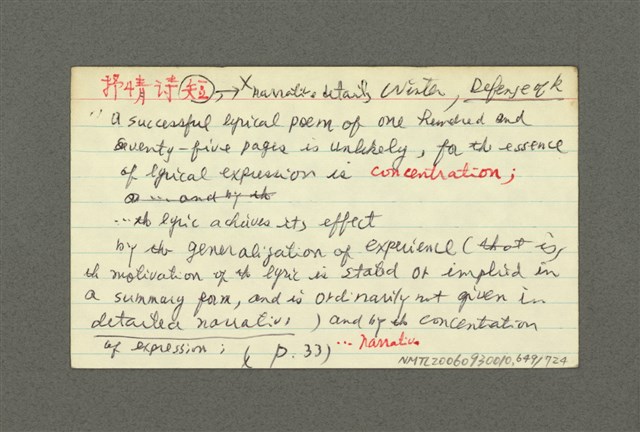 抒情诗短,→ X narrative details Winter, Defense of R
" A successful lyrical poem of one hundred and
seventy-five pages is unlikely, for th essence
of lyrical expression is concentration;
... and by th
... th lyric achives its effect
by th generalization of experience (that is,
th motivation of th lyric is stated or implied in
a summary form, and is ordinarily not given in
detailed narrative) and by th concentration
of expression; (p. 33) ... narrative
NMTL20060930010,649/724